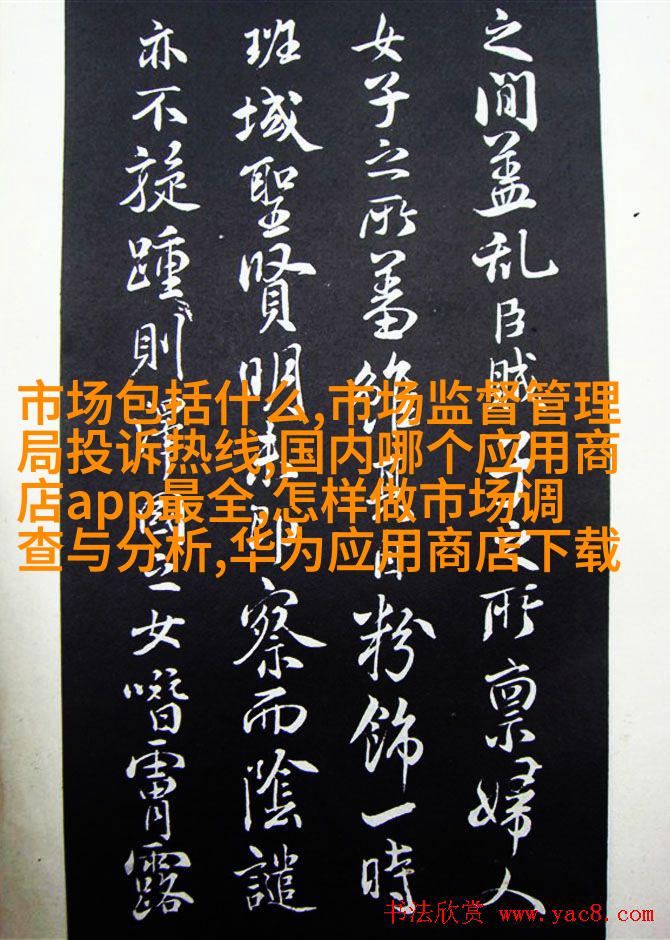 之間盖乱臣賊子之所禀婦人
女子之所蓄其目粉飾一時
班域聖賢明未即察而陰譴
亦不旋踵則澤國之女噆霄露
市场包括什么,市场监督管理
局投诉热线,国内哪个应用商
店app最全,怎样做市场调
查与分析,华为应用商店下载
书法欣赏 www.yac8.com